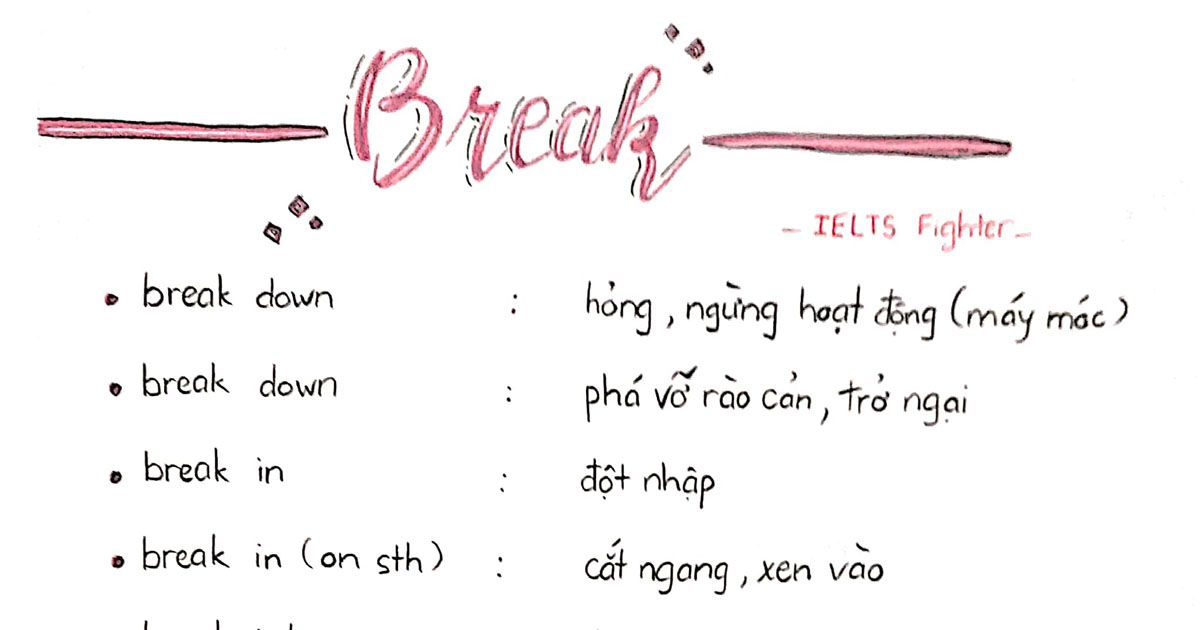 Break
- IELTS Fighter -
• break down : hỏng, ngừng hoạt động (máy móc)
• break down : phá vỡ rào cản, trở ngại
• break in : đột nhập
• break in (on sth) : cắt ngang, xen vào